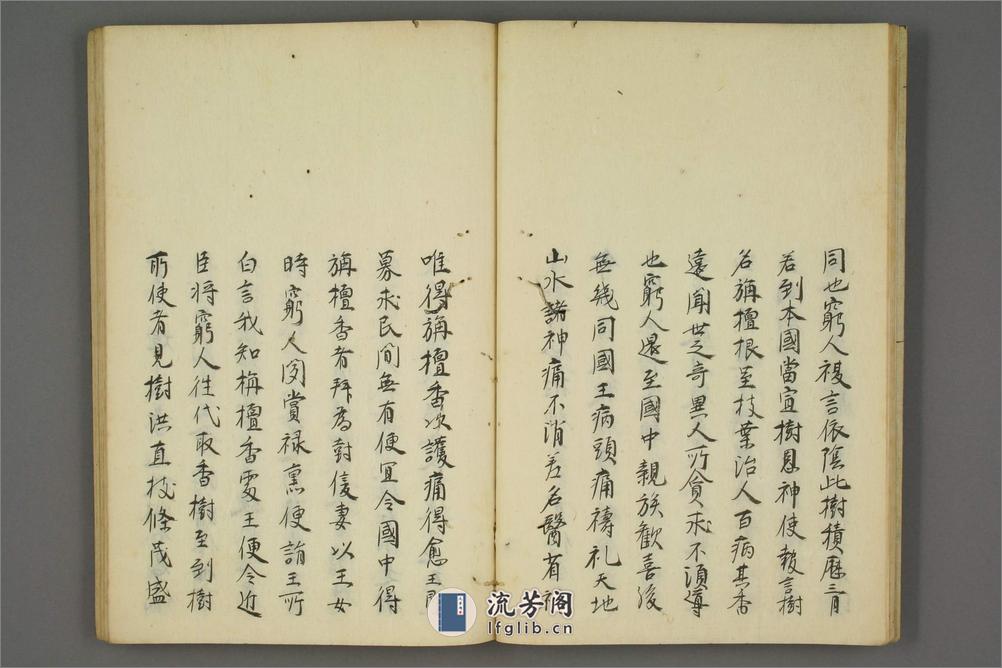 同也窮人複言依陰此樹積歷三月
若到本國當宣樹恩神使報言樹
名旃檀根至枝葉治人百病其香
遠聞世之奇異人所貪求不須導
也窮人還至國中親族歡喜後
無幾同國王病頭痛禱礼天地
山水諸神痛不消差名醫省
唯得旃檀香以護痛得愈王
募求民間無有便宣令國中得
旃檀香者拜為封侯妻以王女
時窮人聞賞禄熏便詣王所
白言我知栴檀香處王便令近
臣将窮人往伐取香樹至到樹
所使者見樹洪直枝條茂盛
流芳阁
lfglib.cn